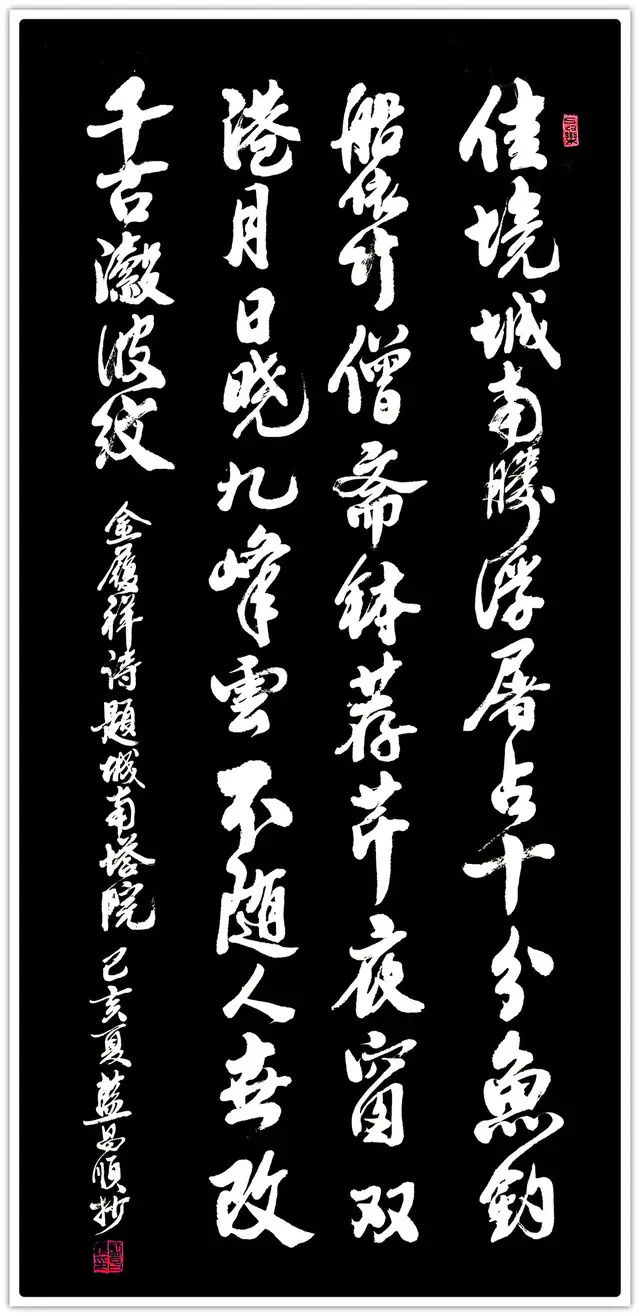 佳境城南勝浮屠占十分魚釣
船依竹僧斋鉢荐芹夜窗双
港月日晓九峰雲不随人世改
千古瀫波纹
金履祥诗题城南塔院 己亥夏藍昌順抄